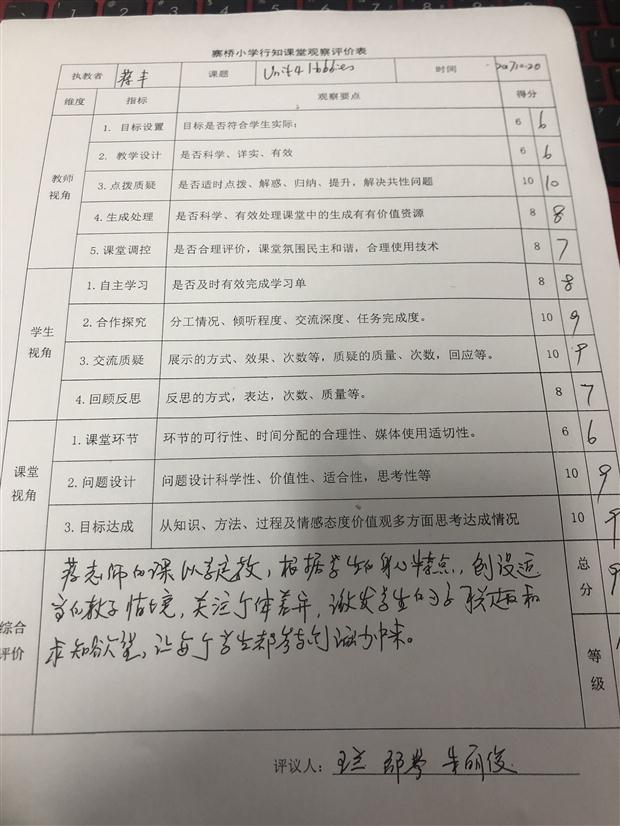 寨桥小学行知课堂观察评价表
执教者 蒋丰 课题 Unit 4 Hobbies 时间 2017.10.20
维度 指标 观察要点 得分
教师视角
1. 目标设置 目标是否符合学生实际; 6 6
2. 教学设计 是否科学、详实、有效 6 6
3.点拨质疑 是否适时点拨、解惑、归纳、提升,解决共性问题 10 10
4.生成处理 是否科学、有效处理课堂中的生成有有价值资源 8 8
5.课堂调控 是否合理评价,课堂氛围民主和谐,合理使用技术 8 7
学生视角
1.自主学习 是否及时有效完成学习单 8 8
2.合作探究 分工情况、倾听程度、交流深度、任务完成度。 10 9
3.交流质疑 展示的方式、效果、次数等,质疑的质量、次数,回应等。 10 9
4.回顾反思 反思的方式,表达,次数、质量等。 8 7
课堂视角
1.课堂环节 环节的可行性、时间分配的合理性、媒体使用适切性。 6 6
2.问题设计 问题设计科学性、价值性、适合性,思考性等 10 9
3.目标达成 从知识、方法、过程及情感态度价值观多方面思考达成情况 10 9
综合评价
蒋老师的课以学定教,根据学生的身心特点,创设适
当的教学情境,关注个体差异,激发学生的学习兴趣和
求知欲望,让每个学生都参与到活动中来。
总分 9
等级
评议人: 王兰 朱丽俊